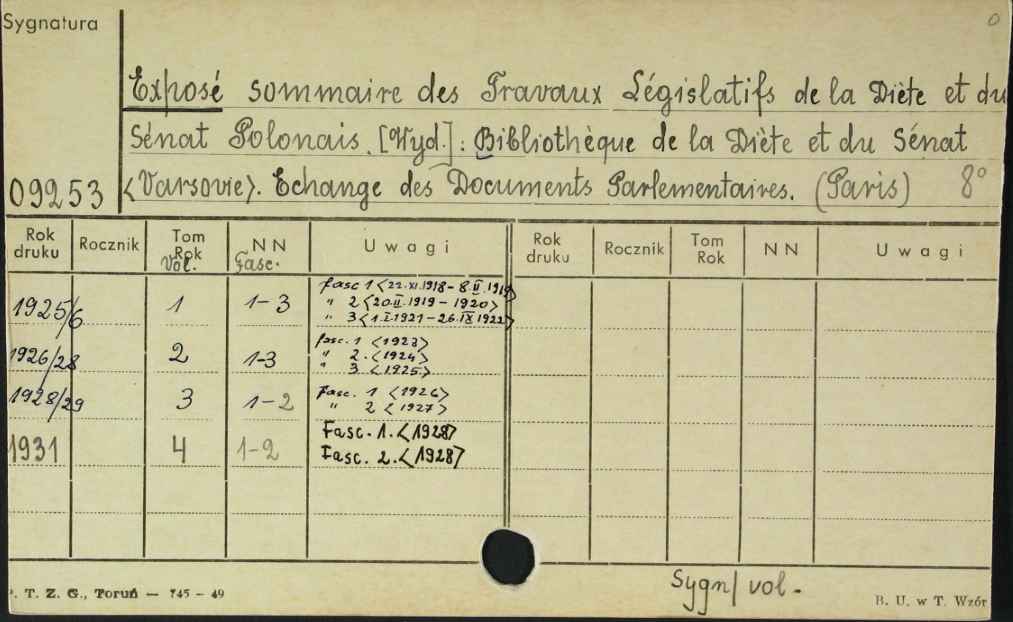 Sygnatura
0
Exposé sommaire des Travaux Législatifs de la Diète et du
Sénat Polonais. [Wyd.]: Bibliothèque de la Diète et du Sénat
09253 <Varsovie>. Echange des Documents Parlementaires. (Paris) 8°
Rok druku Rocznik Tom Rok Vol. NN Fasc. Uwagi Rok druku Rocznik Tom Rok NN Uwagi
1925/6 1 1-3 fasc 1 <22.XI.1918 - 8.II.1919>
" 2 <20.II.1919 - 1920>
" 3 <1.I.1921 - 26.IX.1922>
1926/28 2 1-3 fasc. 1 <1923>
" 2. <1924>
" 3. <1925>
1928/29 3 1-2 fasc. 1 <1926>
" 2 <1927>
1931 4 1-2 Fasc. 1. <1928>
Fasc. 2. <1928>
Sygn/ vol.
P. T. Z. G., Toruń — 745 - 49
B. U. w T. Wzór